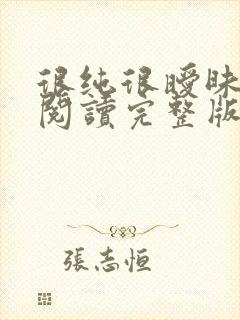 很纯很曖昧
閱讀完整版
張志恒